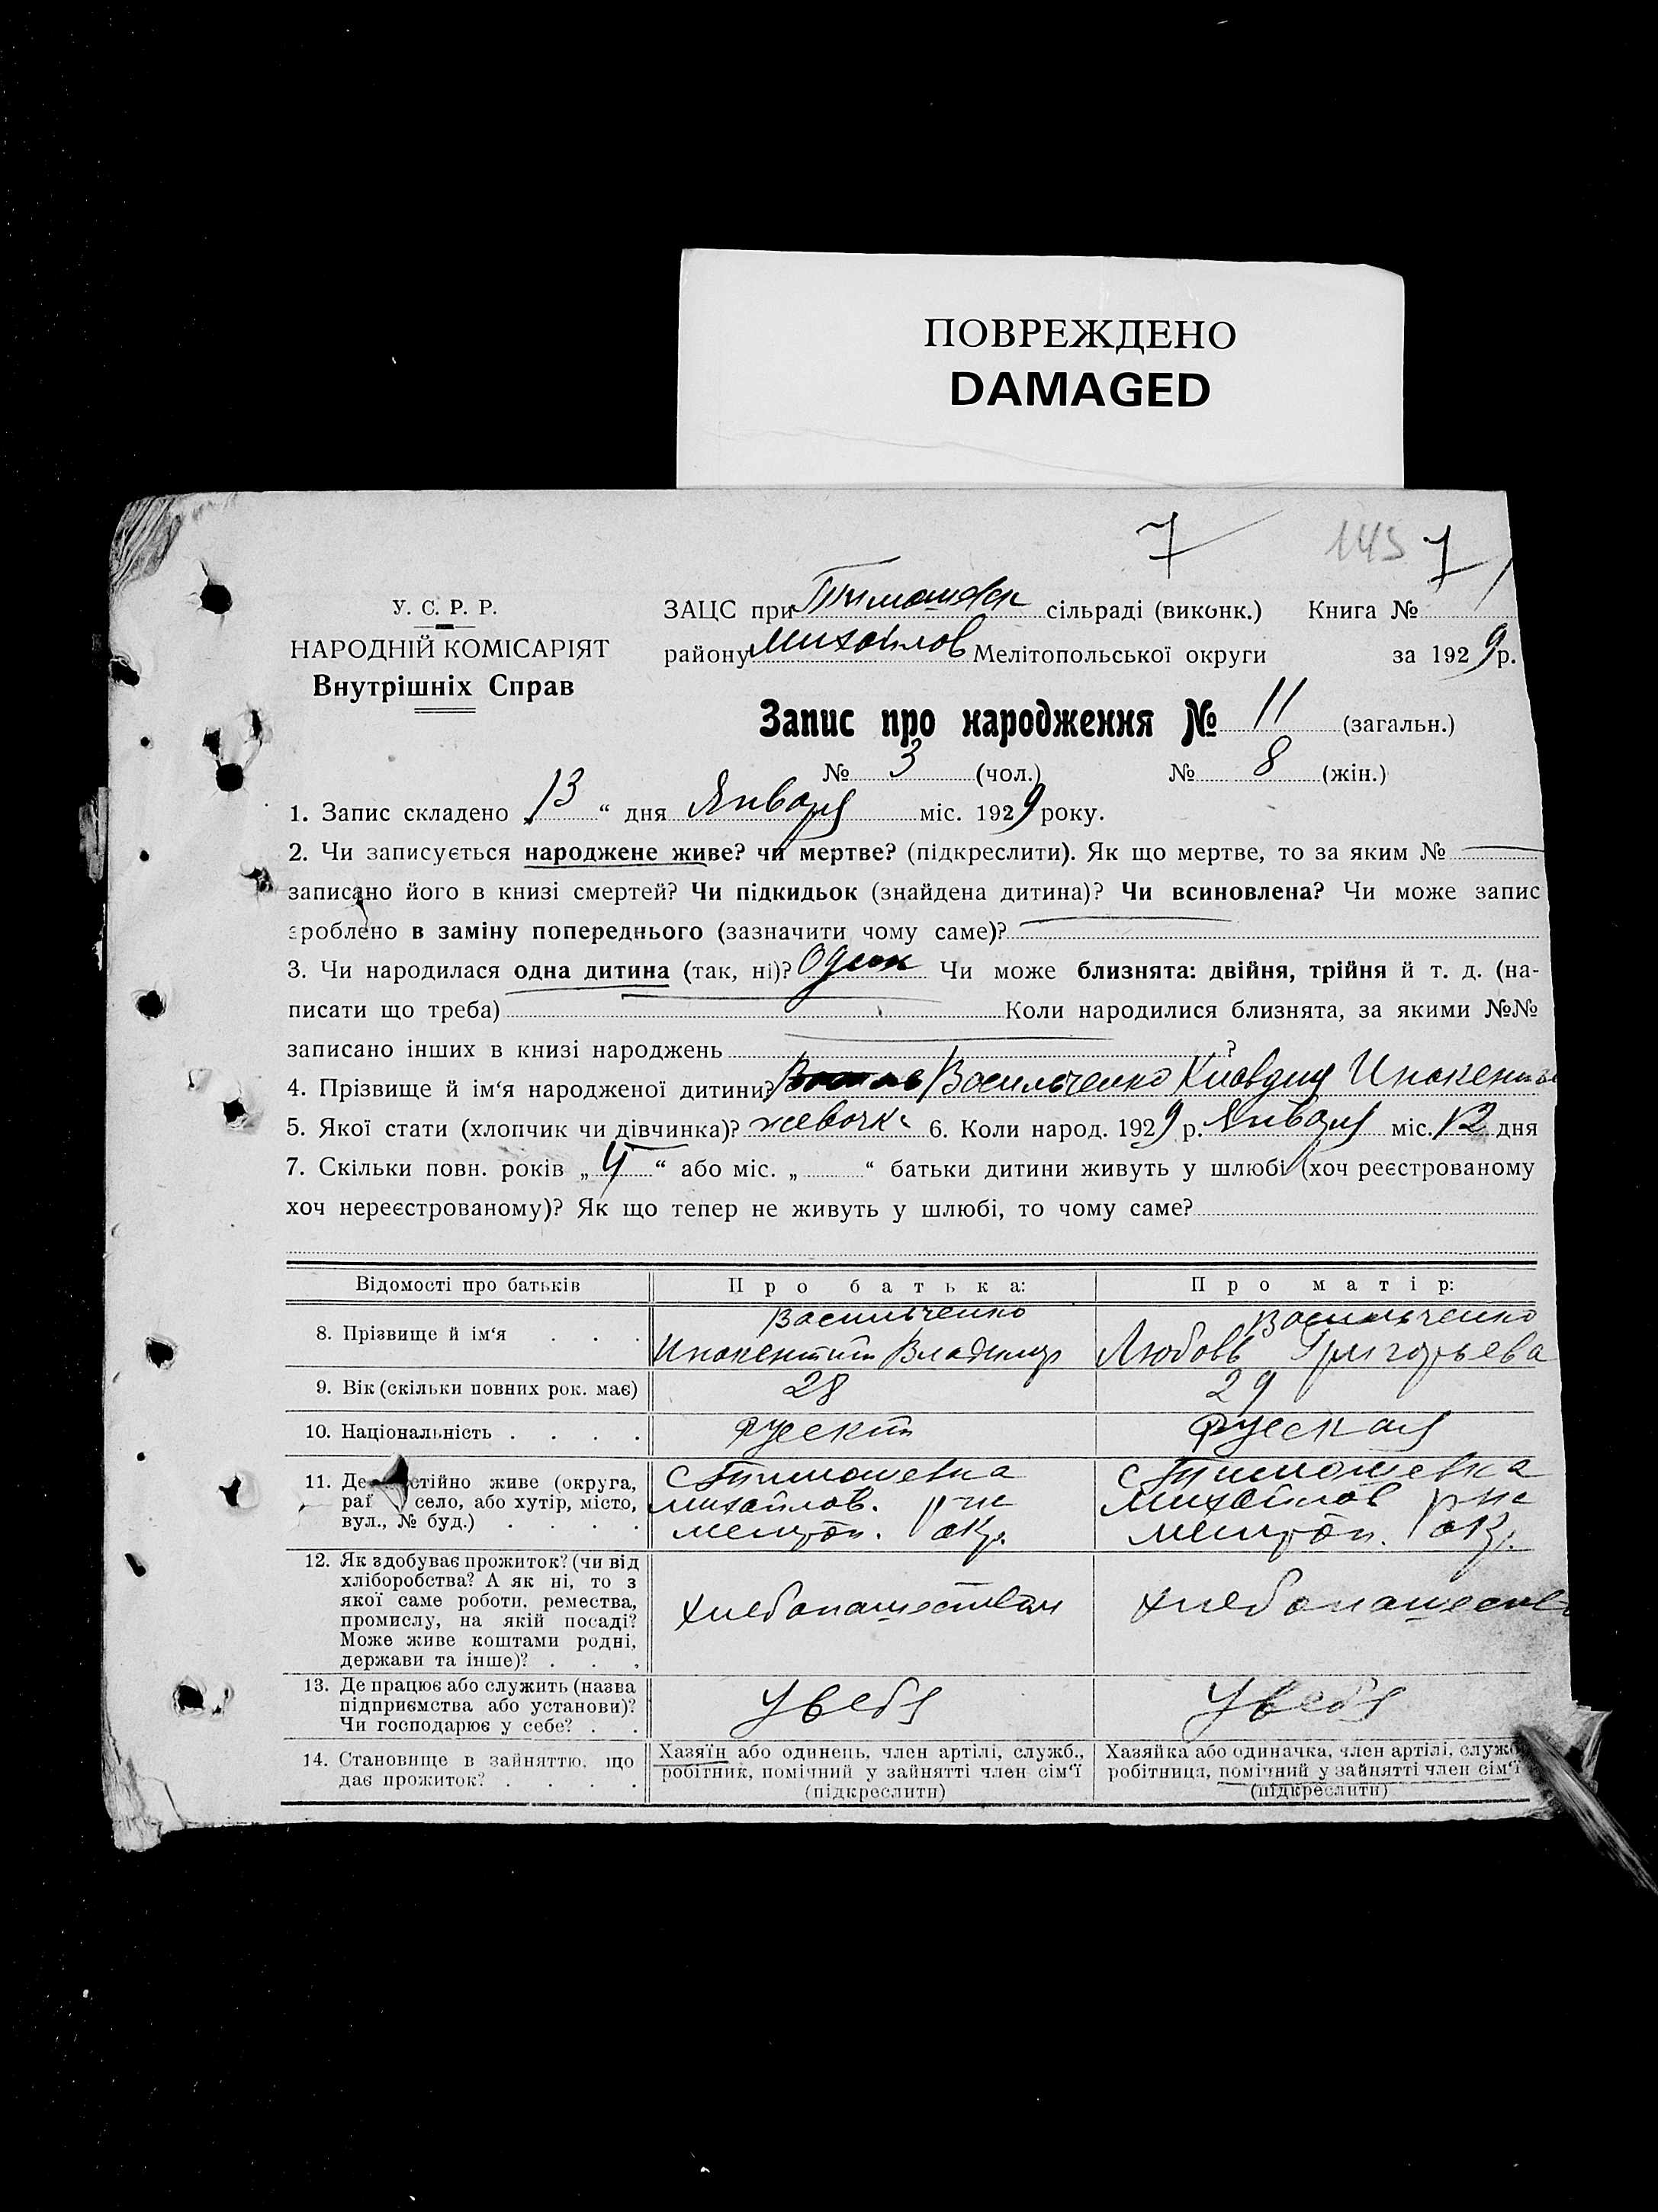 ПОВРЕЖДЕНО
DAMAGED
7 143 7
У. С. Р. Р.
НАРОДНІЙ КОМІСАРІЯТ
Внутрішніх Справ
ЗАЦС при Тимошевск сільраді (виконк.) Книга №
району Михайлов Мелітопольської округи за 1929 р.
Запис про народження № 11 (загальн.)
№ 3 (чол.) № 8 (жін.)
1. Запис складено 13 “ дня Января міс. 1929 року.
2. Чи записується народжене живе? чи мертве? (підкреслити). Як що мертве, то за яким №
записано його в книзі смертей? Чи підкидьок (знайдена дитина)? Чи всиновлена? Чи може запис
зроблено в заміну попереднього (зазначити чому саме)?
3. Чи народилася одна дитина (так, ні)? Один Чи може близнята: двійня, трійня й т. д. (на-
писати що треба) Коли народилися близнята, за якими №№
записано інших в книзі народжень ?
4. Прізвище й ім'я народженої дитини? Васильченко Клавдия
5. Якої стати (хлопчик чи дівчинка)? 6. Коли народ. 1929 р. Января міс. 12 дня
7. Скільки повн. років „ 4 “ або міс. „ “ батьки дитини живуть у шлюбі (хоч реєстрованому
хоч нереєстрованому)? Як що тепер не живуть у шлюбі, то чому саме?
Відомості про батьків Про батька: Про матір:
8. Прізвище й ім'я . . . Васильченко Инокентий Владимир Васильченко Любовь Григорьева
9. Вік (скільки повних рок. має) 28 29
10. Національність . . . . Руский Руская
11. Де стійно живе (округа,
село, або хутір, місто,
вул., № буд.) . . . .
с Тимошевка
Михайлов. р-на
Мелитоп. окр.
с Тимошевка
Михайлов р-на
Мелитоп. окр.
12. Як здобуває прожиток? (чи від
хліборобства? А як ні, то з
якої саме роботи, ремества,
промислу, на якій посаді?
Може живе коштами родні,
держави та інше)? . . .
хлебопашеством
13. Де працює або служить (назва
підприємства або установи)?
Чи господарює у себе? . .
У себя
У себя
14. Становище в зайняттю, що
дає прожиток? . . . .
Хазяїн або одинець, член артілі, служб.,
робітник, помічний у зайнятті член сім'ї
(підкреслити)
Хазяйка або одиначка, член артілі, служб
робітниця, помічний у зайнятті член сім'ї
(підкреслити)